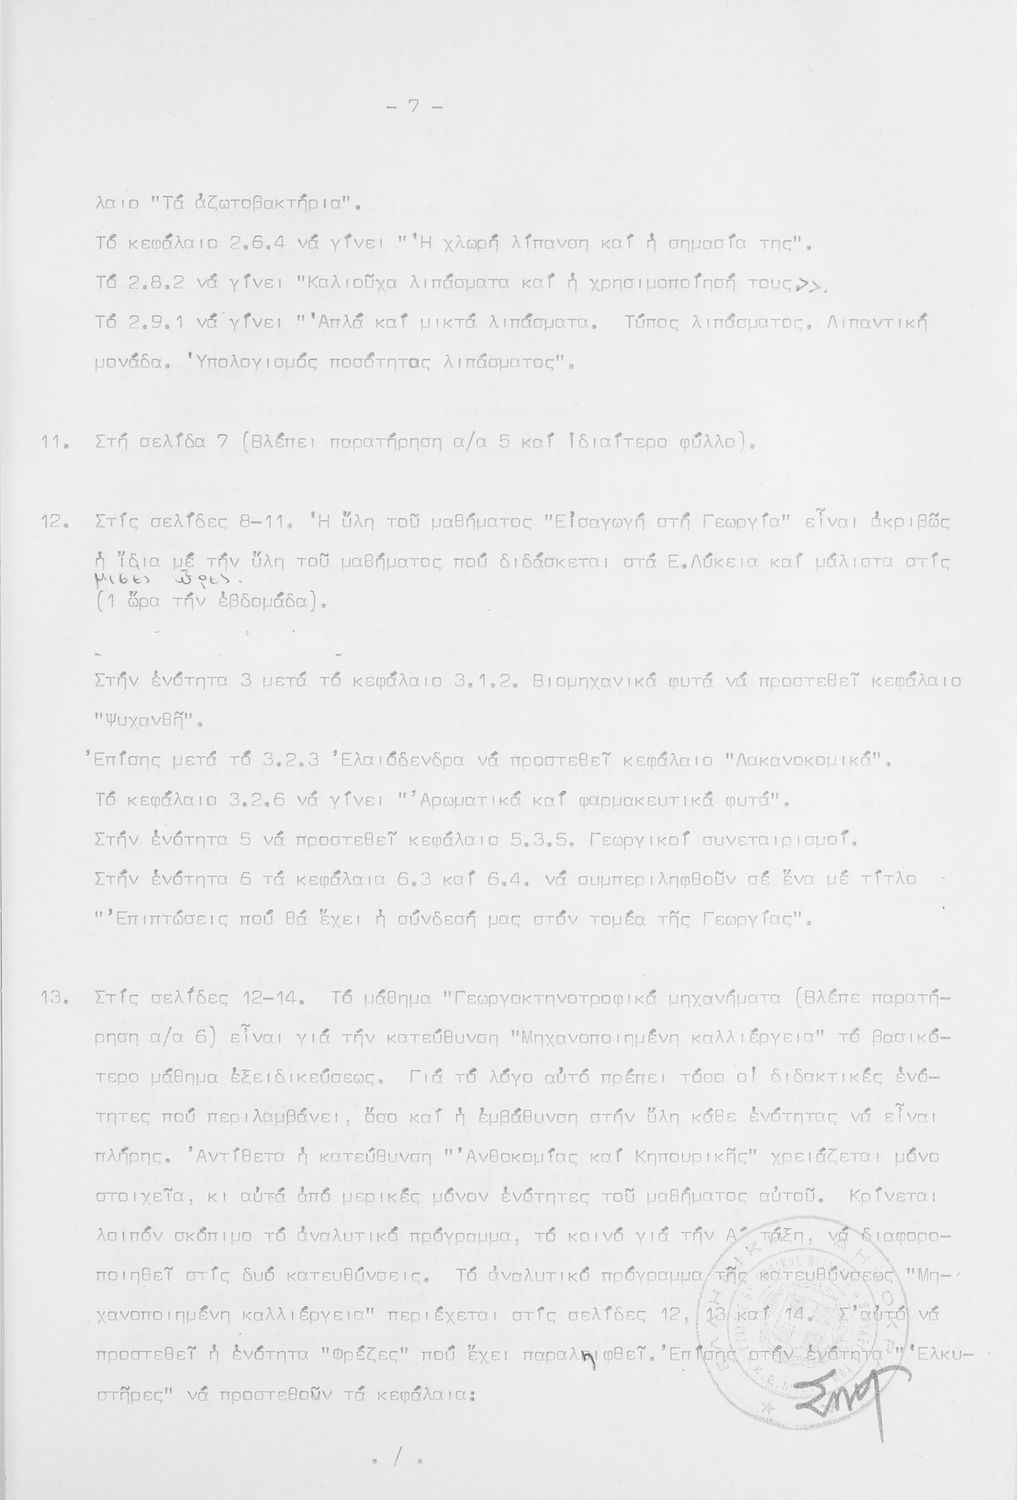 - 7 -
λαιο "Τά ἀζωτοβακτήρια".
Τό κεφάλαιο 2.6.4 νά γίνει "Ἡ χλωρή λίπανση καί ἡ σημασία της".
Τό 2.8.2 νά γίνει "Καλιοῦχα λιπάσματα καί ἡ χρησιμοποίησή τους>>.
Τό 2.9.1 νά γίνει "Ἁπλά καί μικτά λιπάσματα. Τύπος λιπάσματος. Λιπαντική
μονάδα. Ὑπολογισμός ποσότητας λιπάσματος".
11. Στή σελίδα 7 (Βλέπει παρατήρηση α/α 5 καί ἰδιαίτερο φύλλο).
12. Στίς σελίδες 8-11. Ἡ ὕλη τοῦ μαθήματος "Εἰσαγωγή στή Γεωργία" εἶναι ἀκριβῶς
ἡ ἴδια μέ τήν ὕλη τοῦ μαθήματος πού διδάσκεται στά Ε.Λύκεια καί μάλιστα στίς
μισες ὧρες.
(1 ὥρα τήν ἑβδομάδα).
Στήν ἑνότητα 3 μετά τό κεφάλαιο 3.1.2. Βιομηχανικά φυτά νά προστεθεῖ κεφάλαιο
"Ψυχανθῆ".
Ἐπίσης μετά τό 3.2.3 Ἐλαιόδενδρα νά προστεθεῖ κεφάλαιο "Λακανοκομικά".
Τό κεφάλαιο 3.2.6 νά γίνει "Ἀρωματικά καί φαρμακευτικά φυτά".
Στήν ἑνότητα 5 νά προστεθεῖ κεφάλαιο 5.3.5. Γεωργικοί συνεταιρισμοί.
Στήν ἑνότητα 6 τά κεφάλαια 6.3 καί 6.4. νά συμπεριληφθοῦν σέ ἕνα μέ τίτλο
"Ἐπιπτώσεις πού θά ἔχει ἡ σύνδεσή μας στόν τομέα τῆς Γεωργίας".
13. Στίς σελίδες 12-14. Τό μάθημα "Γεωργοκτηνοτροφικά μηχανήματα (Βλέπε παρατή-
ρηση α/α 6) εἶναι γιά τήν κατεύθυνση "Μηχανοποιημένη καλλιέργεια" τό βασικό-
τερο μάθημα ἐξειδικεύσεως. Γιά τό λόγο αὐτό πρέπει τόσο οἱ διδακτικές ἑνό-
τητες πού περιλαμβάνει, ὅσο καί ἡ ἐμβάθυνση στήν ὕλη κάθε ἑνότητας νά εἶναι
πλήρης. Ἀντίθετα ἡ κατεύθυνση "Ἀνθοκομίας καί Κηπουρικῆς" χρειάζεται μόνο
στοιχεῖα, κι αὐτά ἀπό μερικές μόνον ἑνότητες τοῦ μαθήματος αὐτοῦ. Κρίνεται
λοιπόν σκόπιμο τό ἀναλυτικό πρόγραμμα, τό κοινό γιά τήν Α΄ τάξη, νά διαφορο-
ποιηθεῖ στίς δυό κατευθύνσεις. Τό ἀναλυτικό πρόγραμμα τῆς κατευθύνσεως "Μη-
χανοποιημένη καλλιέργεια" περιέχεται στίς σελίδες 12, 13 καί 14. Σ'αὐτό νά
προστεθεῖ ἡ ἑνότητα "Φρέζες" πού ἔχει παραληφθεῖ. Ἐπίσης στήν ἑνότητα "Ἑλκυ-
στῆρες" νά προστεθοῦν τά κεφάλαια:
./.